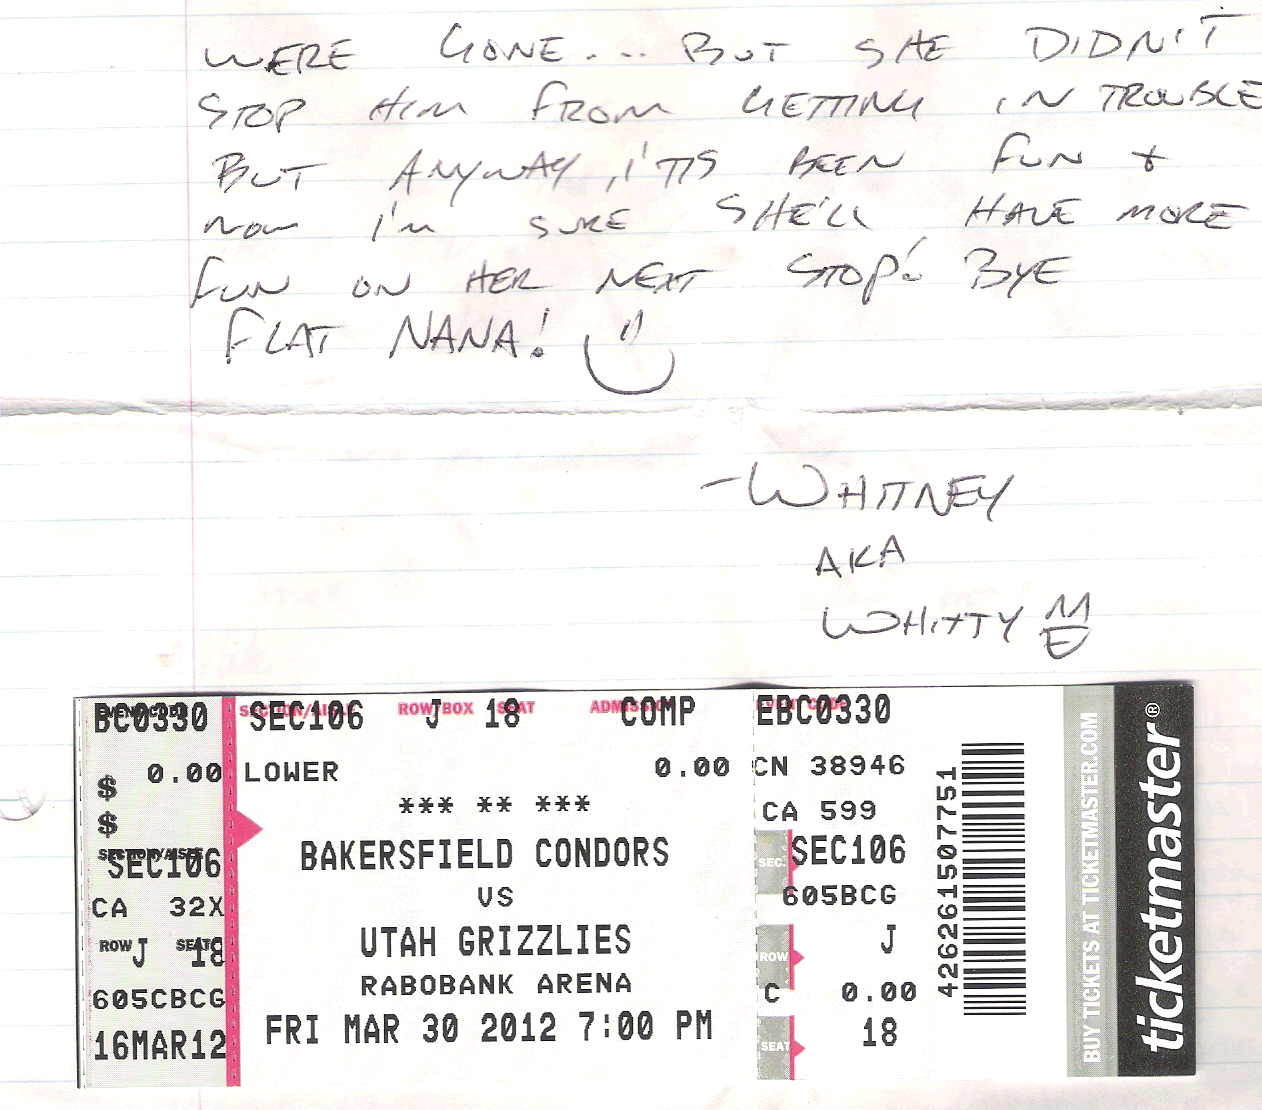 WERE GONE.... BUT SHE DIDN'T
STOP HIM FROM GETTING IN TROUBLE
BUT ANYWAY, IT'S BEEN FUN &
NOW I'M SURE SHE'LL HAVE MORE
FUN ON HER NEXT STOP! BYE
FLAT NANA!
-WHITNEY
AKA
WHITTY
BC0330
$ 0.00
$
SECTION/AISLE
SEC106
CA 32X
ROW J SEAT 18
605CBCG
16MAR12
SECTION/AISLE ROW/BOX SEAT ADMISSION
SEC106 J 18 COMP
LOWER 0.00
*** ** ***
BAKERSFIELD CONDORS
VS
UTAH GRIZZLIES
RABOBANK ARENA
FRI MAR 30 2012 7:00 PM
EVENT CODE
EBC0330
CN 38946
CA 599
SEC. SEC106
605BCG
ROW J
C 0.00
SEAT 18
426261507751
BUY TICKETS AT TICKETMASTER.COM
ticketmaster®